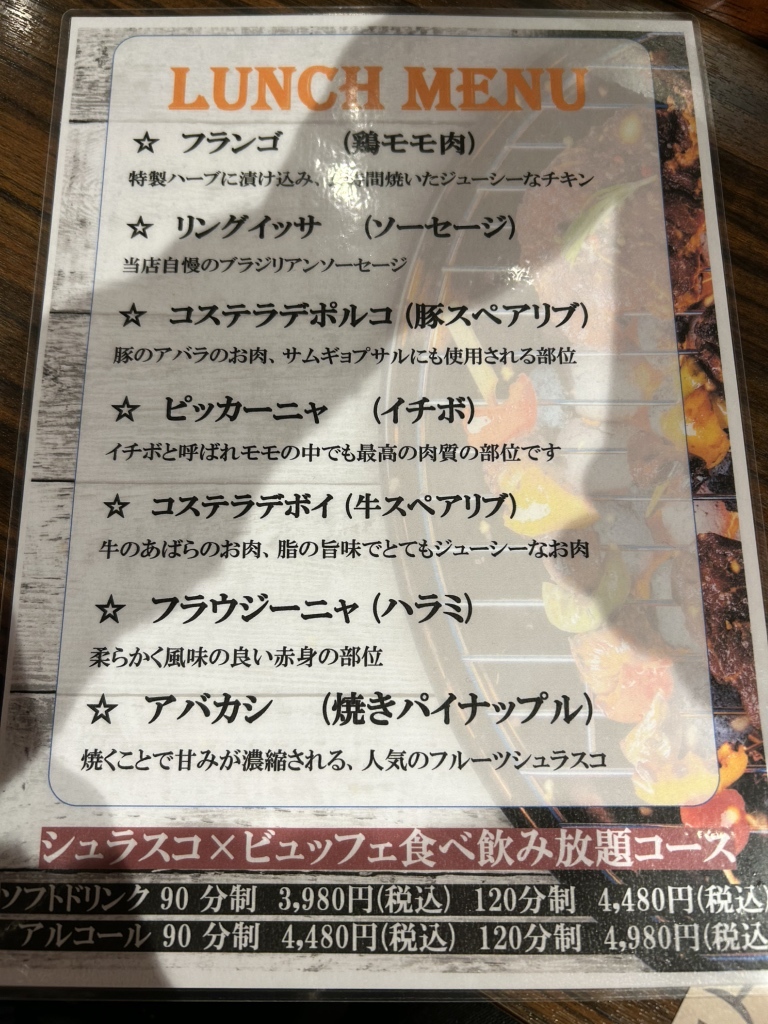 LUNCH MENU
☆ フランゴ (鶏モモ肉)
特製ハーブに漬け込み、 間焼いたジューシーなチキン
☆ リングイッサ (ソーセージ)
当店自慢のブラジリアンソーセージ
☆ コステラデポルコ (豚スペアリブ)
豚のアバラのお肉、サムギョプサルにも使用される部位
☆ ピッカーニャ (イチボ)
イチボと呼ばれモモの中でも最高の肉質の部位です
☆ コステラデボイ (牛スペアリブ)
牛のあばらのお肉、脂の旨味でとてもジューシーなお肉
☆ フラウジーニャ (ハラミ)
柔らかく風味の良い赤身の部位
☆ アバカシ (焼きパイナップル)
焼くことで甘みが濃縮される、人気のフルーツシュラスコ
シュラスコ×ビュッフェ食べ飲み放題コース
ソフトドリンク 90 分制 3,980円(税込) 120分制 4,480円(税込)
アルコール 90 分制 4,480円(税込) 120分制 4,980円(税込